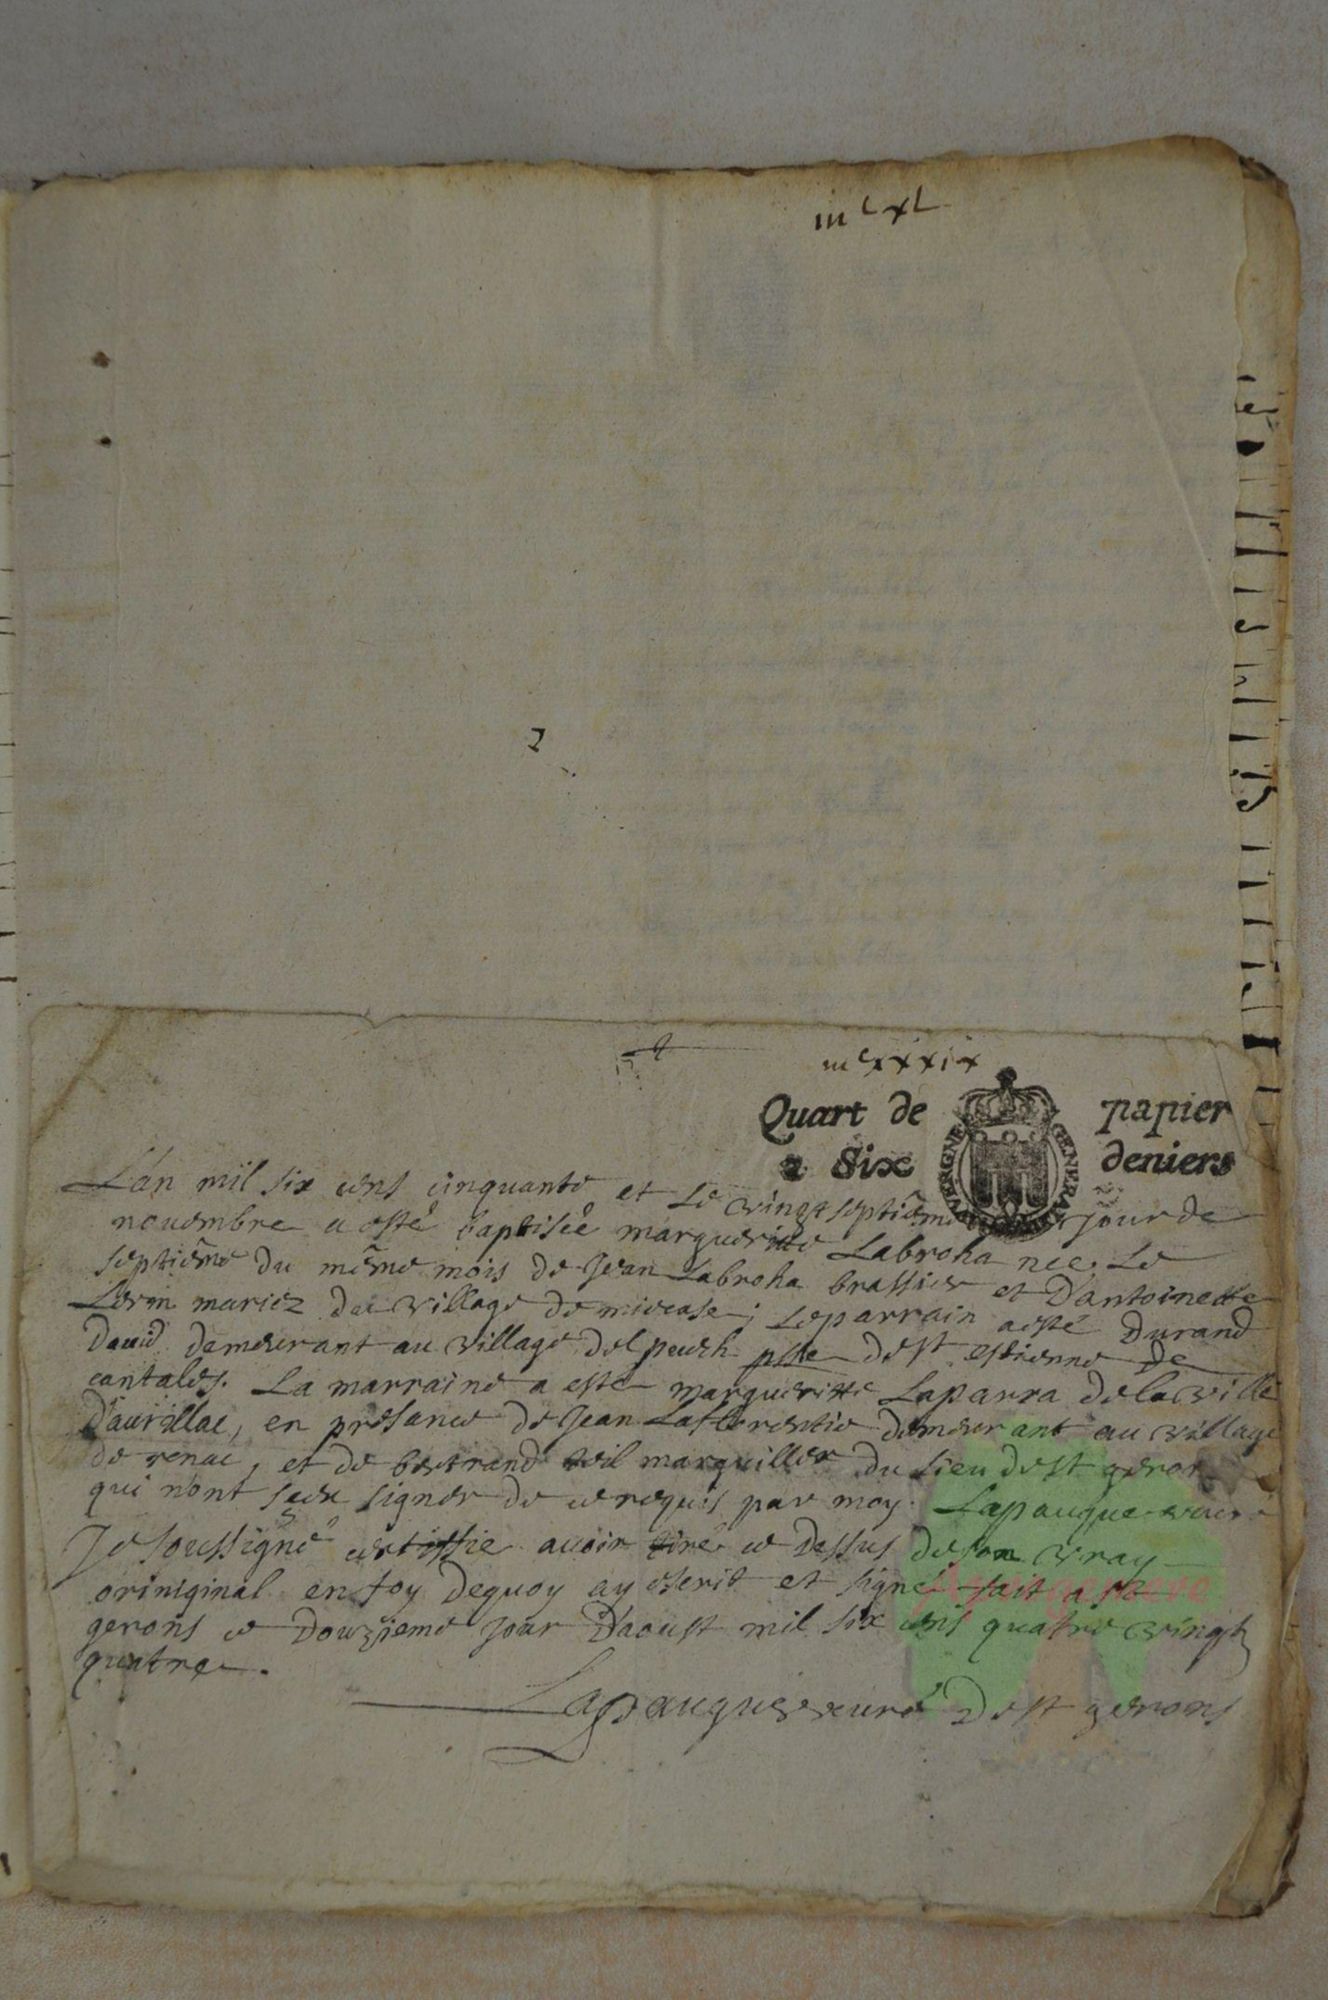 iii c xl
2
iii c xxxix
Quart de papier
a Six deniers
L'an mil six cens cinquante et le vingt septiême jour de
nouembre a esté baptiseé margueritte Labroha nee le
septiême du même mois de Jean Labroha brassier et D'antoinette
mariez du village de ; le parrain a esté Durand
Dauid demeurant au village del peuch psse de st estienne de
cantales. La marraine a este margueritte Laparra de la ville
D'aurillac, en presance de Jean demeurant au village
de renac, et de bertrand marguiller du lieu de st geron
qui nont sceu signer de ce requis par moy. Lapauque curé
Je soussigné certiffie auoir tiré ce Dessus de son vray
oriniginal en foy dequoy ay escrit et signé fait a st
gerons ce Douziême jour D'aoust mil six cens quatre vingt
quatre.
Lapauque curé De st gerons